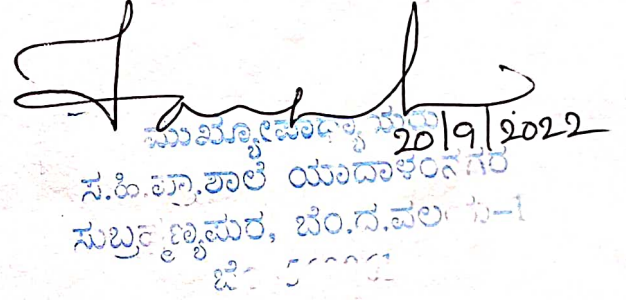 20/9/2022
ಮುಖ್ಯೋಪಾಧ್ಯಾಯರು
ಸ.ಹಿ.ಪ್ರಾ.ಶಾಲೆ ಯಾದಾಳಂನಗರ
ಸುಬ್ರಹ್ಮಣ್ಯಪುರ, ಬೆಂ.ದ.ವಲಯ-1